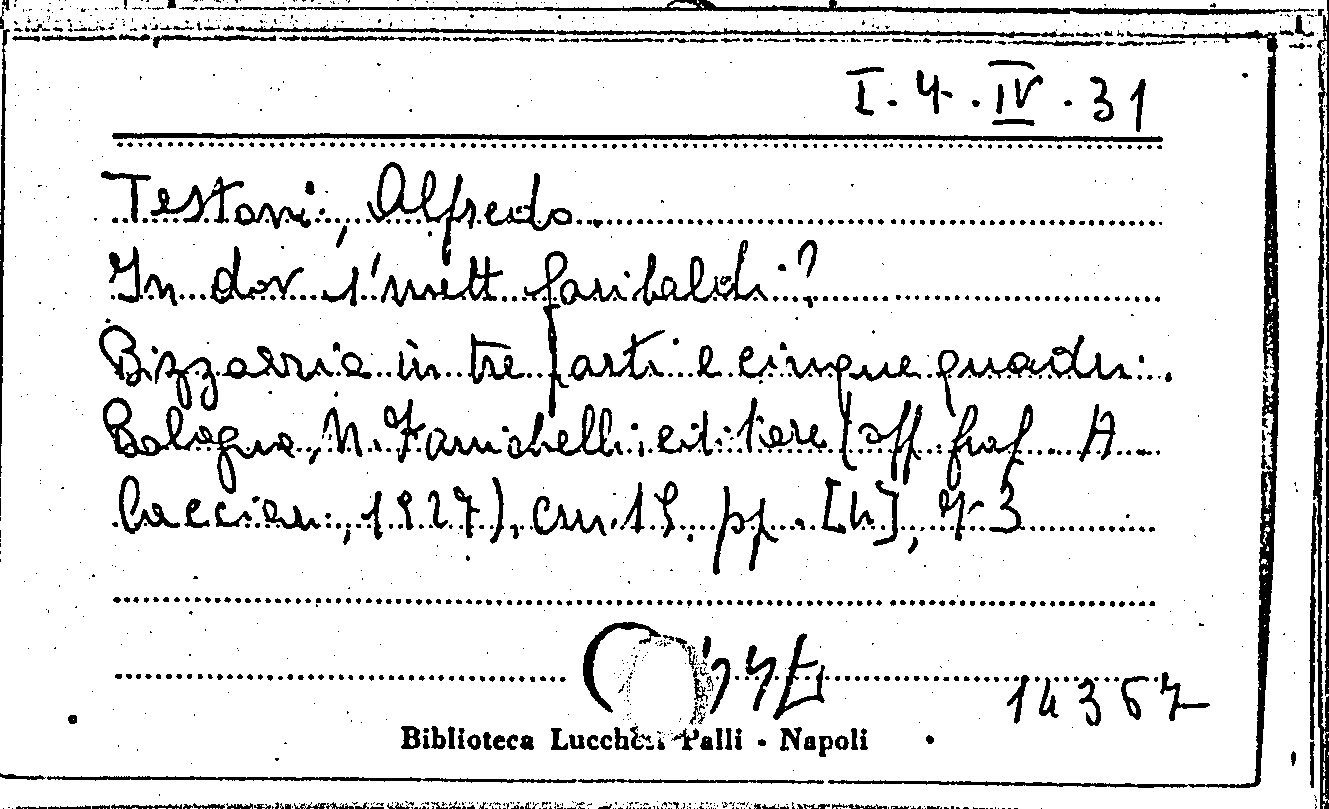 I. 4. IV. 31
Testoni, Alfredo.
In dov s'mett Garibaldi?
Bizzarria in tre parti e cinque quadri.
Bologna, N. Zanichelli editore (off. graf. A
Cacciari, 1927), cm. 19. pp. [4], 73
14367
Biblioteca Lucchesi Palli - Napoli